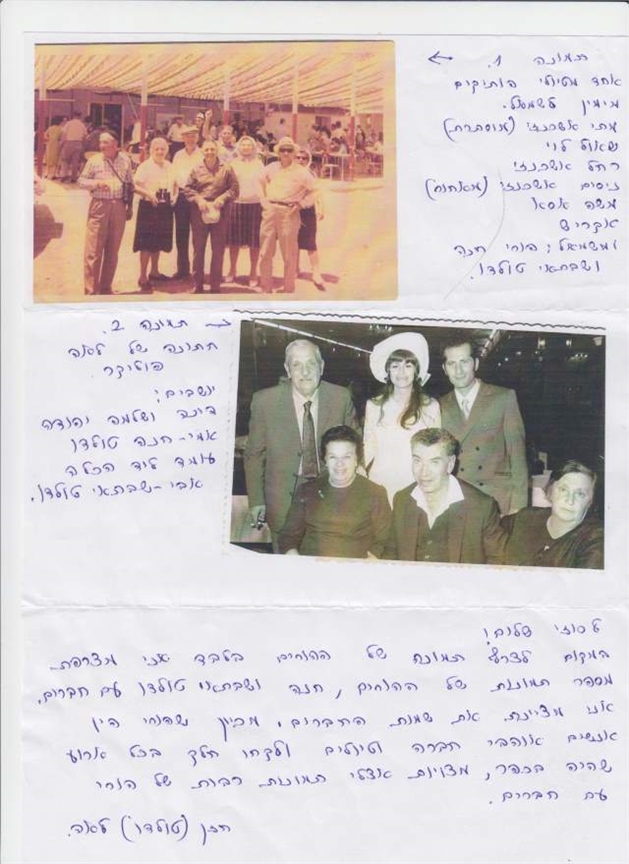 תמונה 1.
אחד מטיולי הותיקים
מימין לשמאל.
מתי אשכנזי (מוסתרת)
שאול לוי
רחל אשכנזי
ניסים אשכנזי (מאחור)
משה אסא
אקריש
ומשמאל: הורי חנה
ושבתאי טולדו.
תמונה 2.
חתונה של לאה
פוליקר.
יושבים:
דינה ושלמה יהודה
אמי - חנה טולדו
עומד ליד הכלה
אבי - שבתאי טולדו.
לסוזי שלום!
במקום לצרף תמונה של ההורים בלבד אני מצרפת
מספר תמונות של ההורים, חנה ושבתאי טולדו עם חברים.
אני מציינת את שמות החברים, מכיון שהורי היו
אנשים אוהבי חברה וטיולים ולקחו חלק בכל ארוע
שהיה בכפר, מצויות אצלי תמונות רבות של הורי
עם חברים.
חזן (טולדו) לאה.